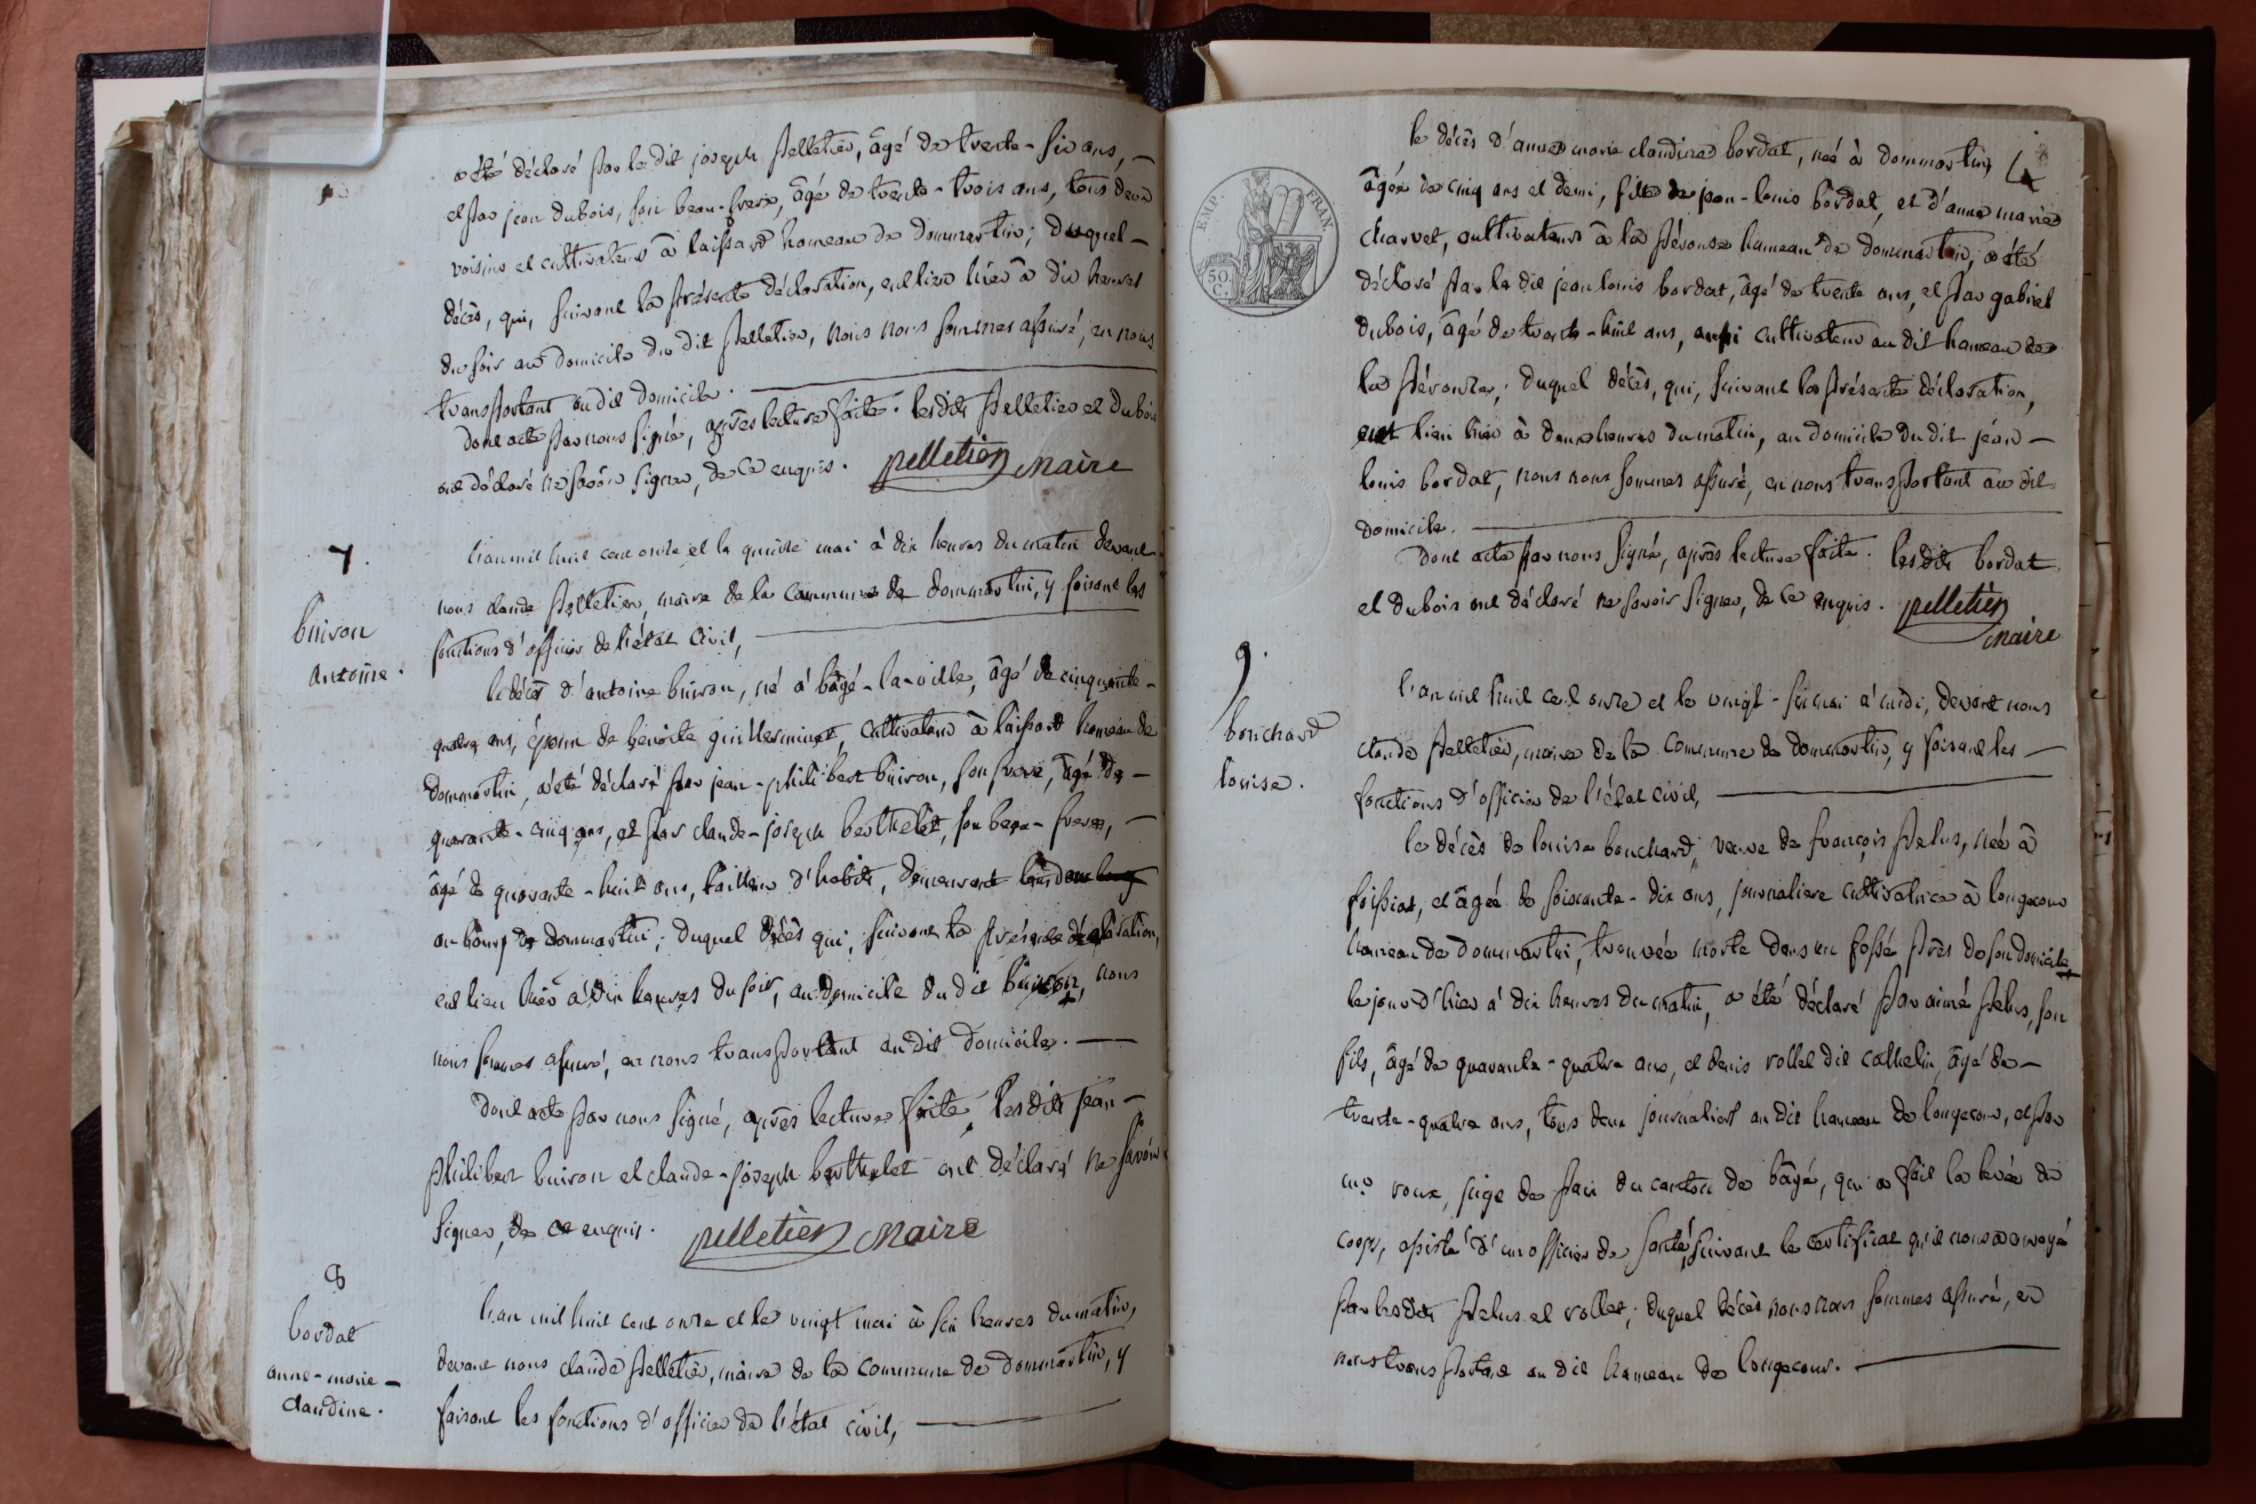 a été déclaré par le dit joseph pelletier, âgé de trente-six ans, —
et par jean dubois, son beau-frere, âgé de trente-trois ans, tous deux
voisins et cultivateurs à laissard hameau de dommartin; duquel —
décès, qui, suivant la présente déclaration, eut lieu hier à dix heures
du soir au domicile du dit pelletier, nous nous sommes assuré, en nous
transportant au dit domicile.
dont acte par nous signé, après lecture faite. les dits pelletier et dubois
ont déclaré ne savoir signer, de ce enquis. pelletier maire
7.
buiron
antoine.
l'an mil huit cent onze et le quinze mai à dix heures du matin devant
nous claude pelletier, maire de la commune de dommartin, y faisant les
fonctions d'officier de l'état civil,
le décès d'antoine buiron, né à bâgé-la-ville, âgé de cinquante-
quatre ans, époux de benoite guillerminet, cultivateur à laissard hameau de
dommartin, a été déclaré par jean-philibert buiron, son frere, âgé de —
quarante-cinq ans, et par claude-joseph berthelet, son beau-frere, —
âgé de quarante-huit ans, tailleur d'habits, demeurant
au bourg de dommartin; duquel décès qui, suivant la présente déclaration,
eut lieu hier à dix heures du soir, au domicile du dit buiron, nous
nous sommes assuré, en nous transportant au dit domicile. —
dont acte par nous signé, après lecture faite, les dits jean-
philibert buiron et claude-joseph berthelet ont déclaré ne savoir
signer, de ce enquis. pelletier maire
8
bordat
anne-marie-
claudine.
l'an mil huit cent onze et le vingt mai à six heures du matin,
devant nous claude pelletier, maire de la commune de dommartin, y
faisant les fonctions d'officier de l'état civil,
EMP. FRAN.
50 C.
4
le décès d'anne marie claudine bordat, née à dommartin,
âgée de cinq ans et demi, fille de jean-louis bordat, et d'anne marie
charvet, cultivateurs à la pérouse hameau de dommartin, a été
déclaré par le dit jean louis bordat, âgé de trente ans, et par gabriel
dubois, âgé de trente-huit ans, aussi cultivateur au dit hameau de
la pérouse; duquel décès, qui, suivant la présente déclaration,
eut lieu hier à deux heures du matin, au domicile du dit jean-
louis bordat, nous nous sommes assuré, en nous transportant au dit
domicile.
dont acte par nous signé, après lecture faite. les dits bordat
et dubois ont déclaré ne savoir signer, de ce enquis. pelletier
maire
9.
bouchard
louise.
l'an mil huit cent onze et le vingt-six mai à midi, devant nous
claude pelletier, maire de la commune de dommartin, y faisant les —
fonctions d'officier de l'état civil,
le décès de louise bouchard, veuve de françois pelus, née à
foissiat, et âgée de soixante-dix ans, journaliere cultivatrice à longecour
hameau de dommartin, trouvée morte dans un fossé près de son domicile
le jour d'hier à dix heures du matin, a été déclaré par aimé pelus, son
fils, âgé de quarante-quatre ans, et denis rollet dit cathelin, âgé de —
trente-quatre ans, tous deux journaliers au dit hameau de longecour, et par
mr roux, juge de paix du canton de bâgé, qui a fait la levée du
corps, assisté d'un officier de santé, suivant le certificat qu'il nous a envoyé
par les dits pelus et rollet; duquel décès nous nous sommes assuré, en
nous transportant au dit hameau de longecour.